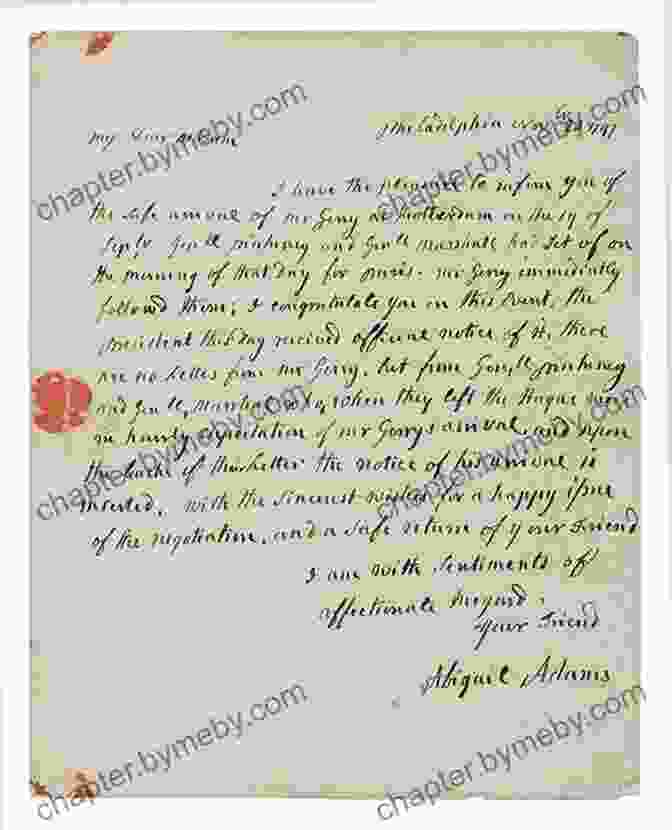 My Dear Madam
Philadelphia Novbr 1797
I have the pleasure to inform you of
the safe arrival of mr Gerry at Rotterdam on the 17 of
Sepbr. Genll pinkney and Genll Marshall had set of on
the morning of that day for paris. mr Gerry immediately
followd them; I congratulate you on this Event, the
president this day received official notice of it, there
are no Letters from mr Gerry, but from Genll pinkney
and Genll, Marshall who, when they left the Hague were
in hourly expectation of mr Gerrys arrival, and upon
the back of their Letter the notice of his arrival is
inserted. with the sincerest wishes for a happy issue
of the negotiation, and a safe return of your Friend
I am with Sentiments of
affectionate Regard.
your Friend
Abigail Adams
chapter.bymeby.com
chapter.bymeby.com
chapter.bymeby.com
chapter.bymeby.com
chapter.bymeby.com
chapter.bymeby.com